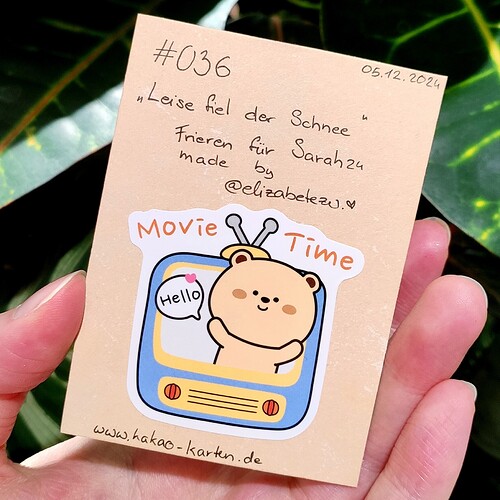 #036
05.12.2024
„Leise fiel der Schnee“
Frieren für Sarah24
made by
@elizabetezw.♥
Movie Time
Hello
www.kakao-karten.de